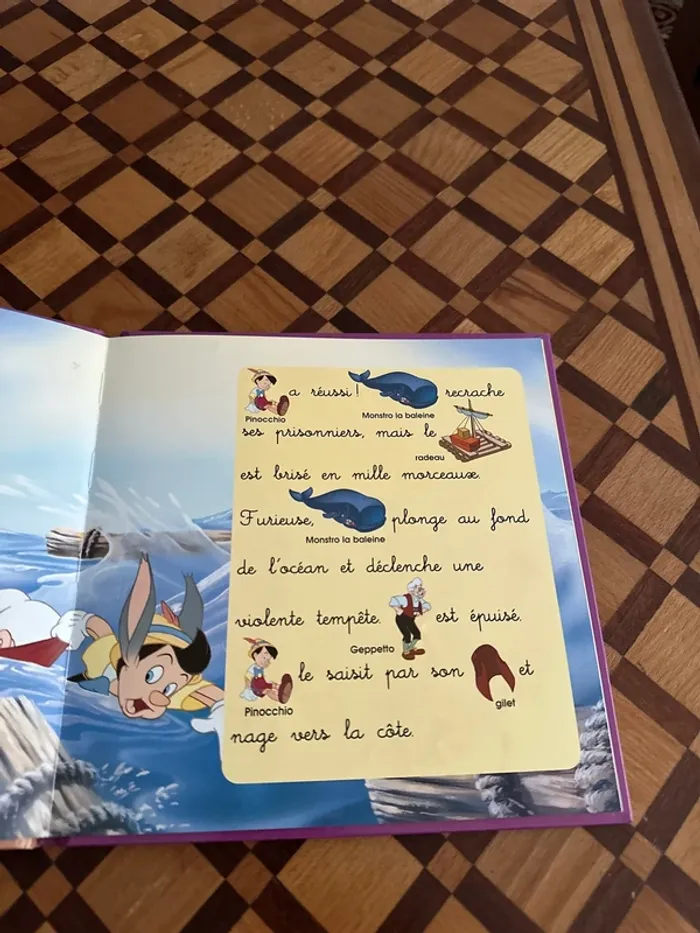 a réussi ! recrache
Pinocchio Monstro la baleine
ses prisonniers, mais le
radeau
est brisé en mille morceaux.
Furieuse, plonge au fond
Monstro la baleine
de l'océan et déclenche une
violente tempête. est épuisé.
Geppetto
le saisit par son et
Pinocchio gilet
nage vers la côte.